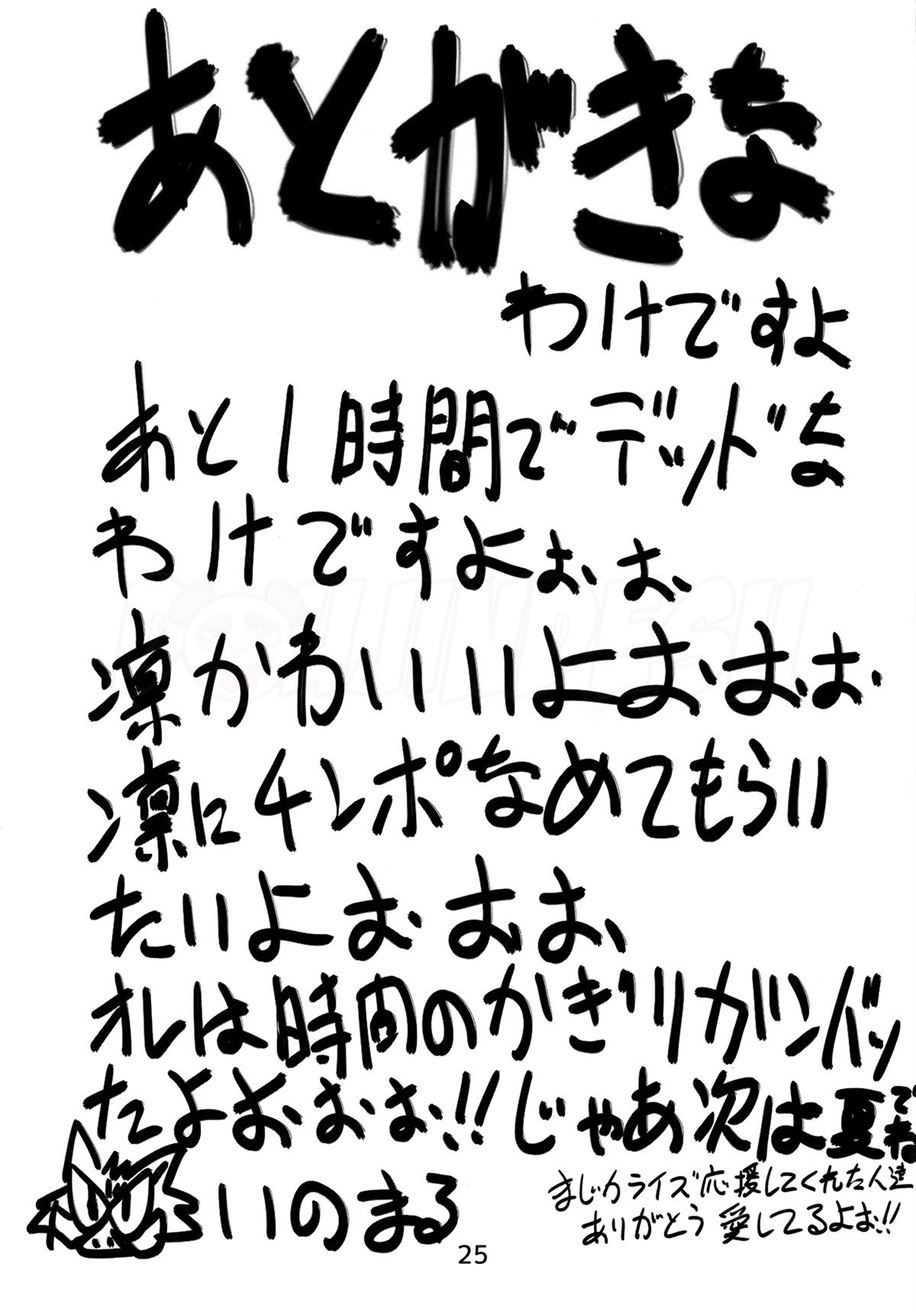 あとがきな
わけですよ
あと1時間でデッドな
わけですよぉぉ
凛かわいいよおおぉ
凛にチンポなめてもらい
たいよぉおぉ、
オレは時間のかぎりガンバッ
たよおぉぉ!!じゃあ次は夏でね
いのまる
まじカライズ応援してくれた人達
ありがとう 愛してるよぉ!!
25